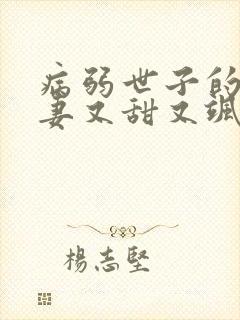 病弱世子的
妻又甜又飒
楊志堅